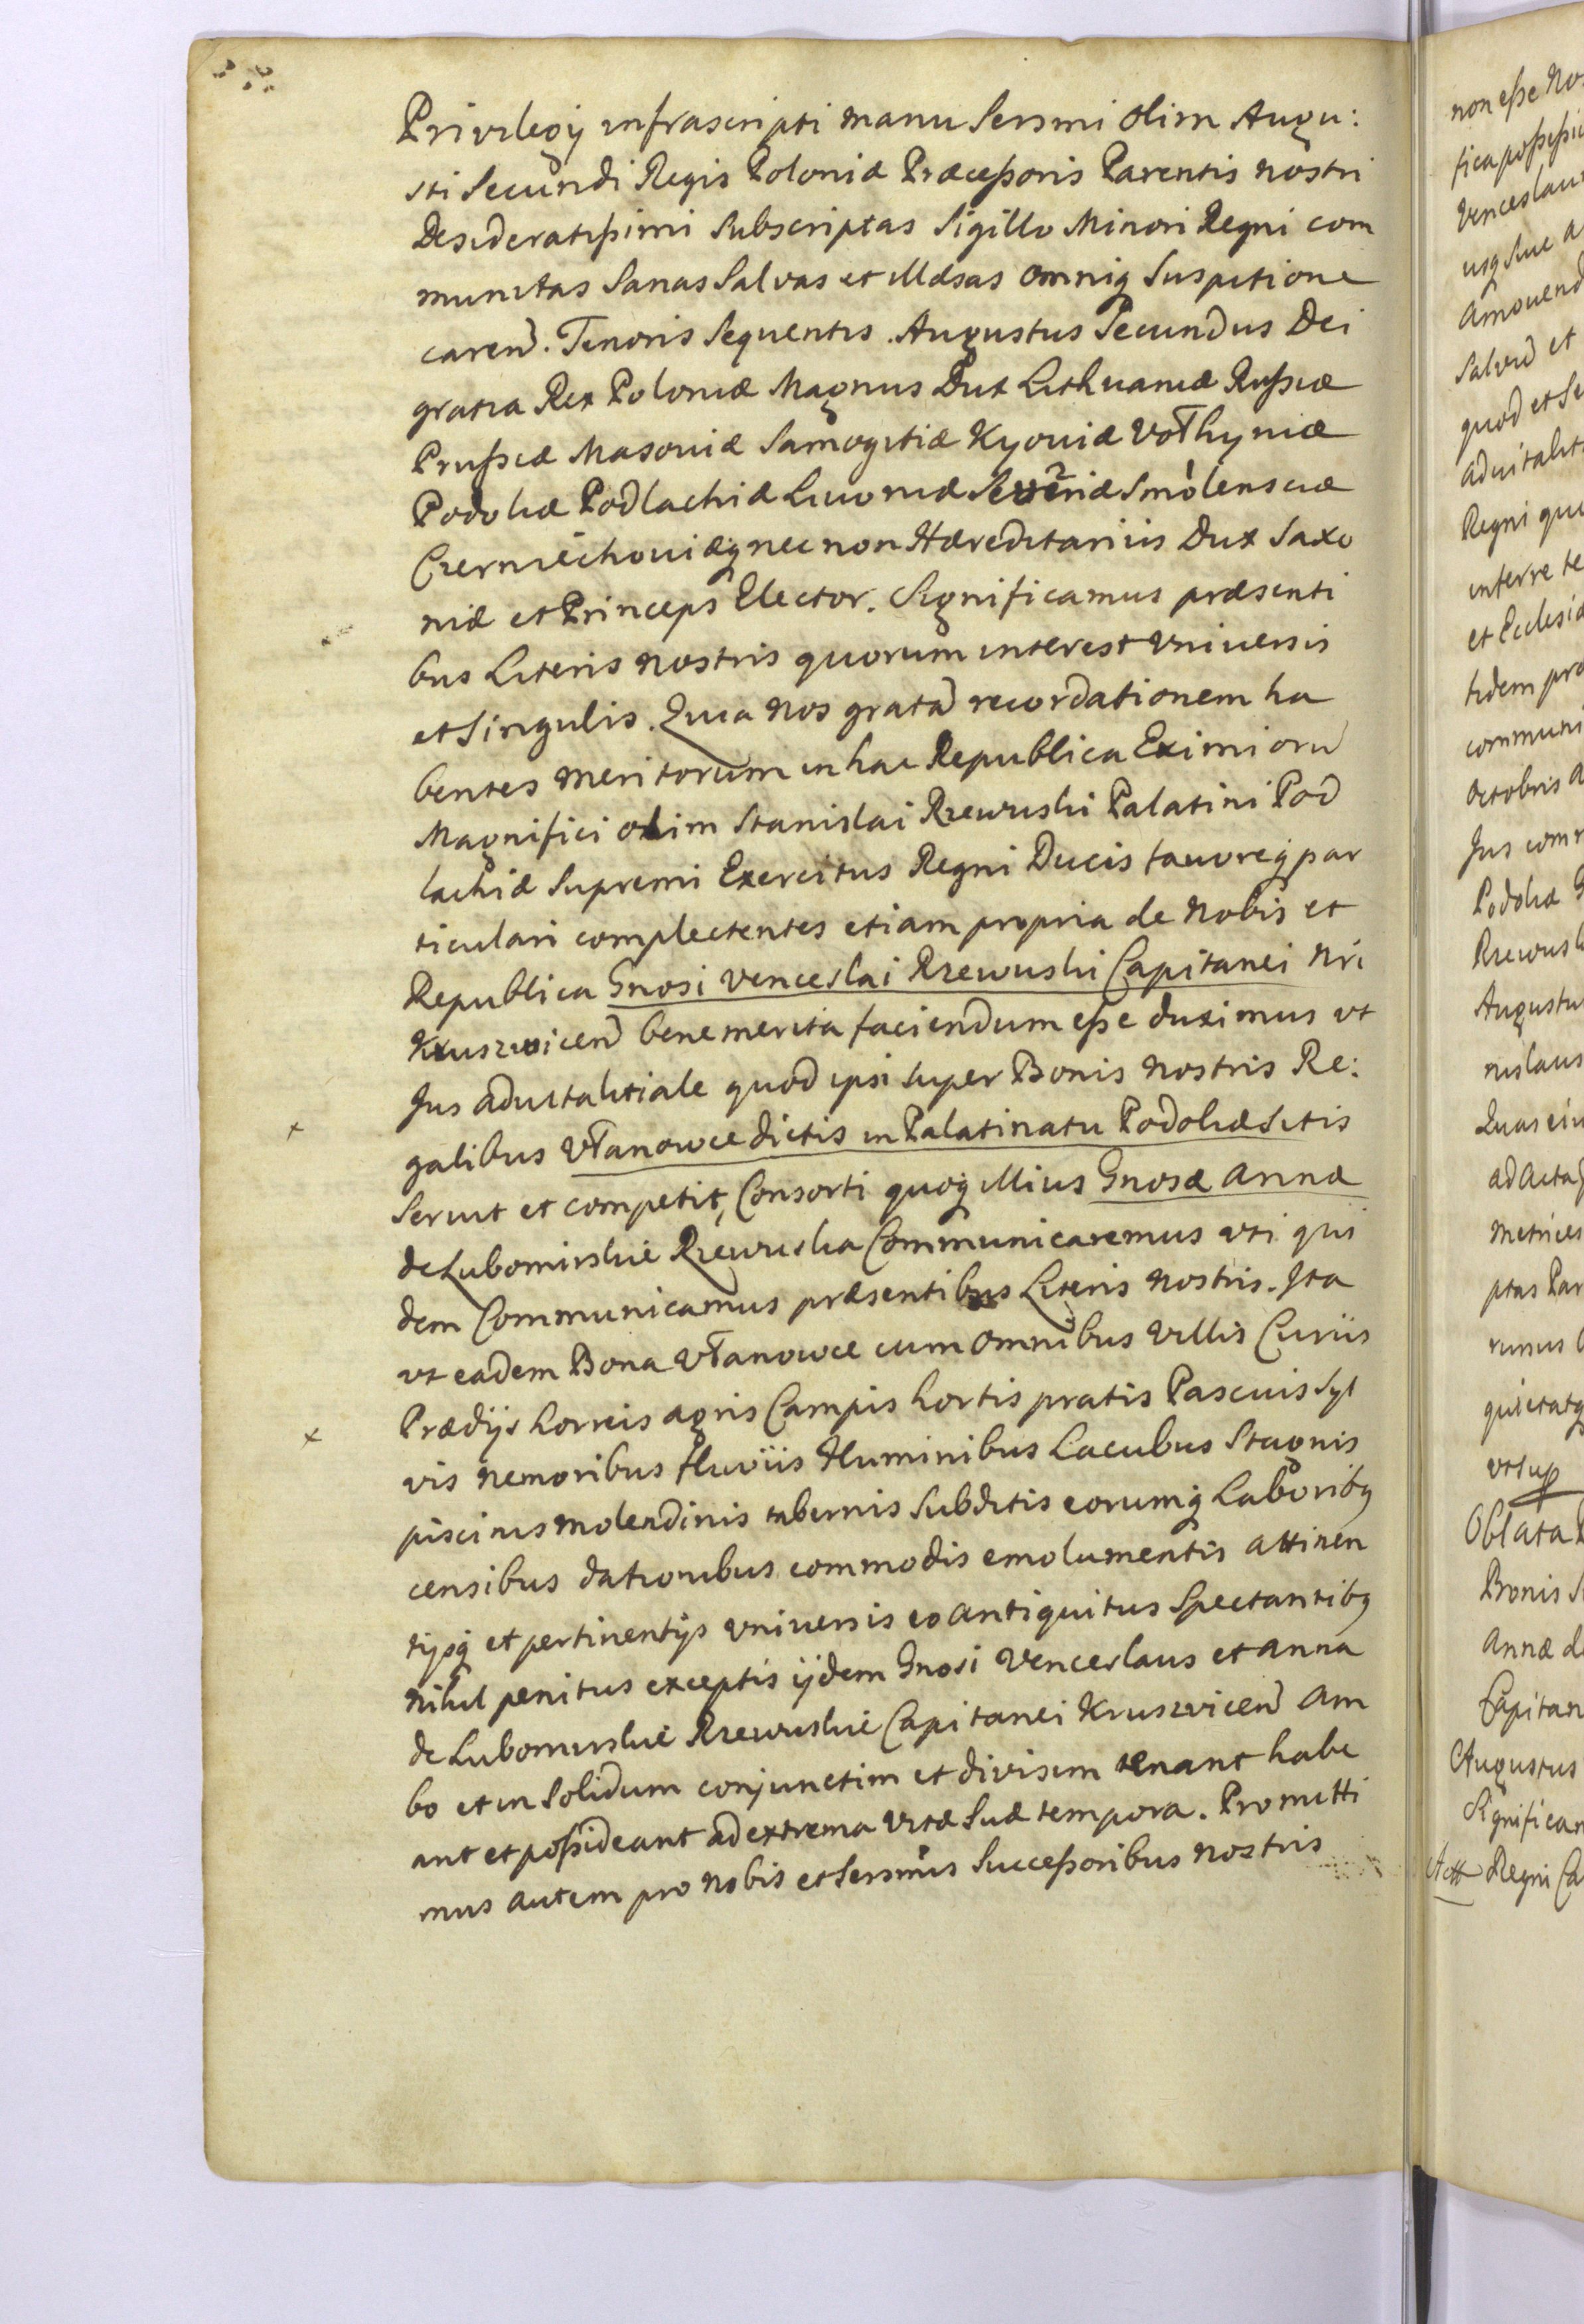 Privilegij infrascripti manu Sersmi Olim Augu:
sti Secundi Regis Poloniæ Præceßoris Parentis nostri
Desideratißimi Subscriptas Sigillo Minori Regni com
munitas Sanas Salvas et illæsas omniq Suspitione
carend. Tenoris Sequentis. Augustus Secundus Dei
gratia Rex Poloniæ Magnus Dux Lithuaniæ Rußiæ
Prußiæ Masoviæ Samogitiæ Kyoviæ Vołhyniæ
Podoliæ Podlachiæ Livoniæ Severiæ Smolensciæ
Czerniechoviæq nec non Hæreditariis Dux Saxo
niæ et Princeps Elector. Significamus præsenti
bus Literis nostris quorum interest Vniuersis
et Singulis. Quia nos gratã recordationem ha
bentes meritorum in hac Republica Eximiorũ
Magnifici olim Stanislai Rzewuski Palatini Pod
lachiæ Supremi Exercitus Regni Ducis fauoreq par
ticulari complectentes etiam propria de Nobis et
Republica Gnosi Venceslai Rzewuski Capitanei Nri
Kruszwicen bene merita faciendum eße duximus vt
Jus aduitalitiale quod ipsi super Bonis nostris Re:
galibus Vłanowce dictis in Palatinatu Podoliæ Sitis
Seruit et competit, Consorti quoq illius Gnosæ Annæ
de Lubomirskie Rzewuska Communicaremus vti qui
dem Communicamus præsentibus Literis nostris. Ita
vt eadem Bona Vłanowce cum omnibus Villis Curiis
Prædijs horreis agris Campis hortis pratis Pascuis Syl
vis nemoribus fluviis Fluminibus Lacubus Stagnis
piscinis molendinis tabernis Subditis eorumq Laboribq
censibus dationibus commodis emolumentis attinen
tijsq et pertinentijs vniuersis eo antiquitus Spectantibq
nihil penitus exceptis ijdem Gnosi Venceslaus et Anna
de Lubomirskie Rzewuskie Capitanei Kruszvicen am
bo et in Solidum conjunctim et divisim tenant habe
ant et poßideant ad extrema vitæ Suæ tempora. Promitti
mus autem pro nobis et Sersmis Succeßoribus nostris
non eße No
Venceslau
amouend
Salvis et
quod et Se
aduitalit
Regni qu
inferre te
et Eclesiæ
tidem pro
communi
Octobris A
Jus comm
Podoliæ G
Rzewusk
Augustu
nislaus
Quas ei
ad Acta
Metrices
ptas Par
rursus
quietatq
vt sup
Oblata
Bonis S
Annæ de
Capitan
Augustus
Significam
Regni Ca